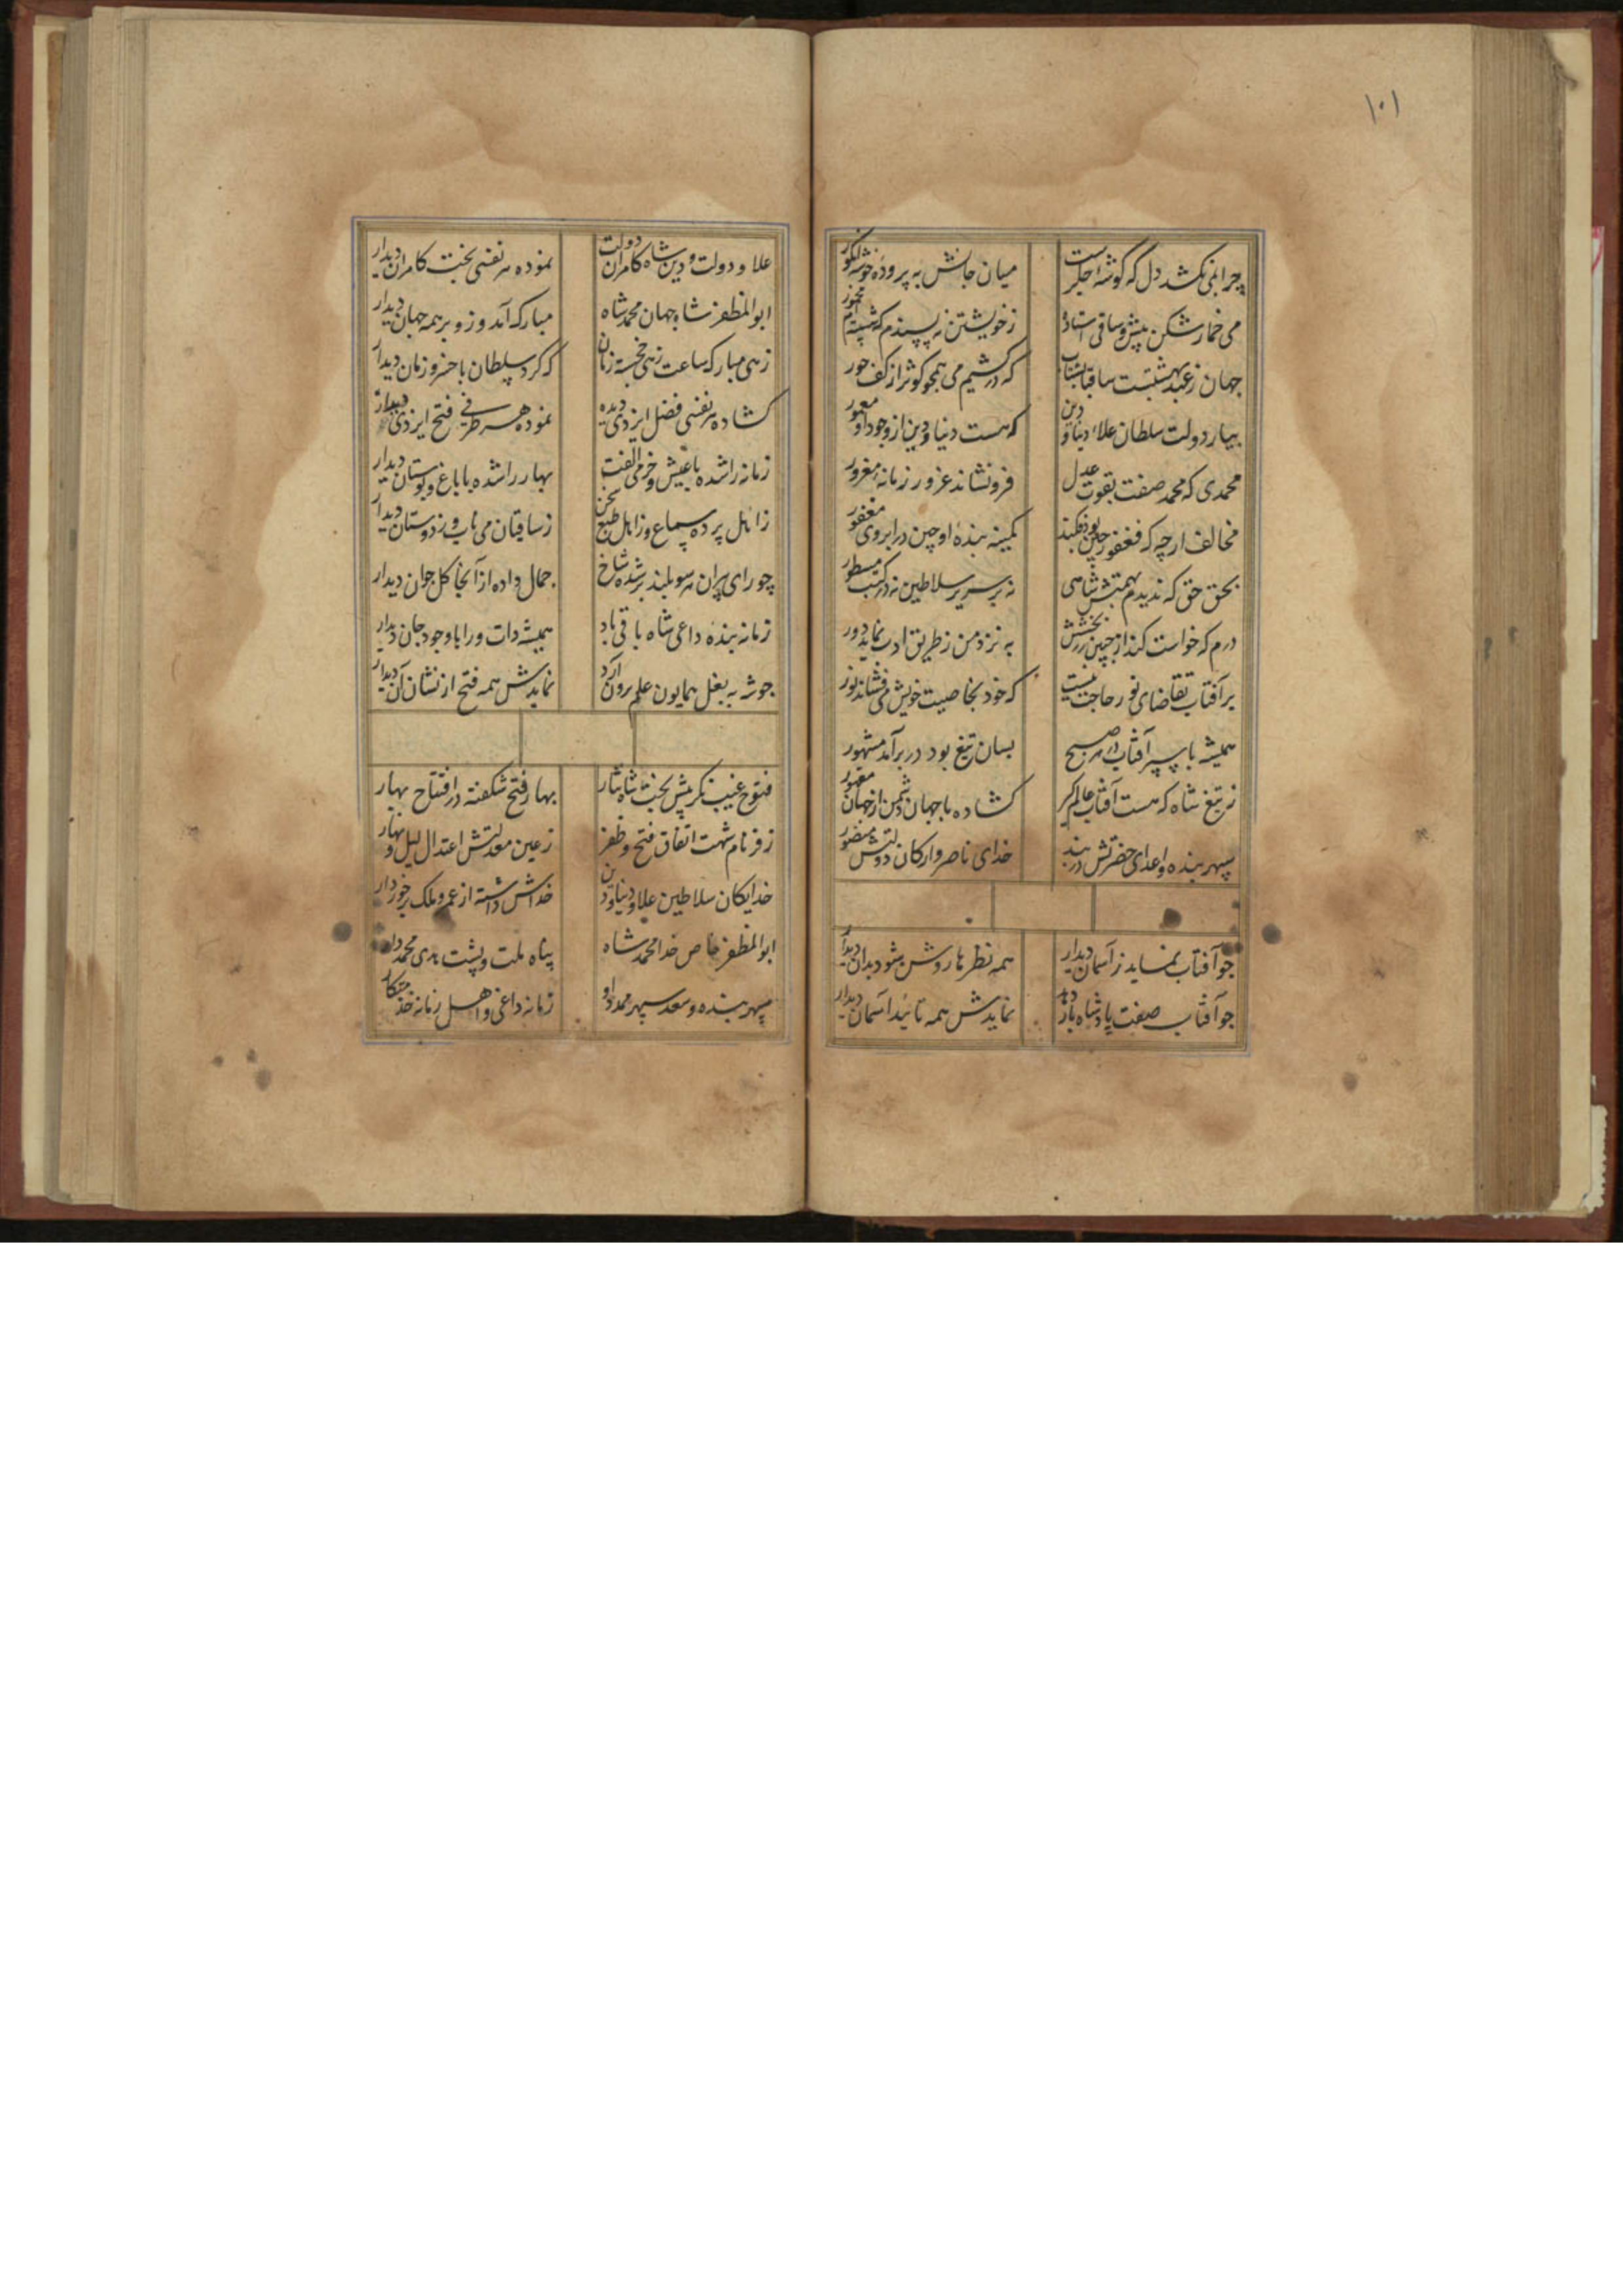 ۱۰۱
چرا نمی کشد دل که گوشهٔ جگرست میان جانش به پرورده خوشهٔ انگور
می خمارشکن پیش و ساقی استاده ز خویشتن نه پسندم که شیشه ام مخمور
جهان ز عید بهشتیست ساقیا بشتاب که درکشیم می همچو کوثر از کف حور
بیار دولت سلطان علاء دنیا و دین که هست دنیا و دین از وجود او معمور
محمدی که محمد صفت بقوت عدل فرونشاند غرور زمانهٔ مغرور
مخالف ارچه که فغفور چین بود فکند کمینه بندهٔ او چین در ابروی فغفور
بحق حق که ندیدم بهمتش شاهی نه بر سریر سلاطین نه در کتب مسطور
درم که خواست کند از جبین بخشش به نزد من ز طریق ادب نماید دور
بر آفتاب تقاضای نور حاجت نیست که خود بخاصیت خویش می فشاند نور
همیشه با سپر آفتاب از هر صبح بسان تیغ بود در برآمد مشهور
ز تیغ شاه که هست آفتاب عالم گیر کشاده با جهان دشمن از جهان مقهور
سپهر بنده و اعدای حضرتش در بند خدای ناصر و ارکان دولتش منصور
چو آفتاب نماید ز آسمان دیدار همه نظرها روشن شود بدان دیدار
چو آفتاب صفت پادشاه باز دهد نمایدش همه تائید آسمان دیدار
علاء دولت و دین شاه کامران دولت نموده هر نفسی بخت کامران دیدار
ابوالمظفر شاه جهان محمد شاه مبارک آمد و زو بر همه جهان دیدار
زهی مبارک ساعت زهی خجسته زمان که کرد سلطان با خسرو زمان دیدار
کشاده هر نفسی فضل ایزدی دیده نموده هر طرفی فتح ایزدی دیدار
زمانه را شده با عیش و خرمی الفت بهار را شده با باغ و بوستان دیدار
ز اهل پرده سماع و ز اهل طبع سخن ز ساقیان می ناب و ز دوستان دیدار
چو رای پیران هر سو بلند بر شده شاخ جمال داده از آنجا گل جوان دیدار
زمانه بنده داعی شاه باقی باد همیشه ذات ورا با وجود جان دیدار
چو شه به بغل همایون علم برون آرد نمایدش همه فتح از نشان آن دیدار
فتوح غیب نگر پیش بخت شاه نثار بهار فتح شکفته در افتتاح بهار
ز فر نام شهت اتفاق فتح و ظفر ز عین معدلتش اعتدال لیل و نهار
خدایگان سلاطین علاء دنیا و دین خداش داشته از عمر و ملک برخوردار
ابوالمظفر خاص خدا محمد شاه پناه ملت و پشت هدی محمدوار
سپهر بنده و سعد سپهر ممد او زمانه داعی و اهل زمانه خدمتکار